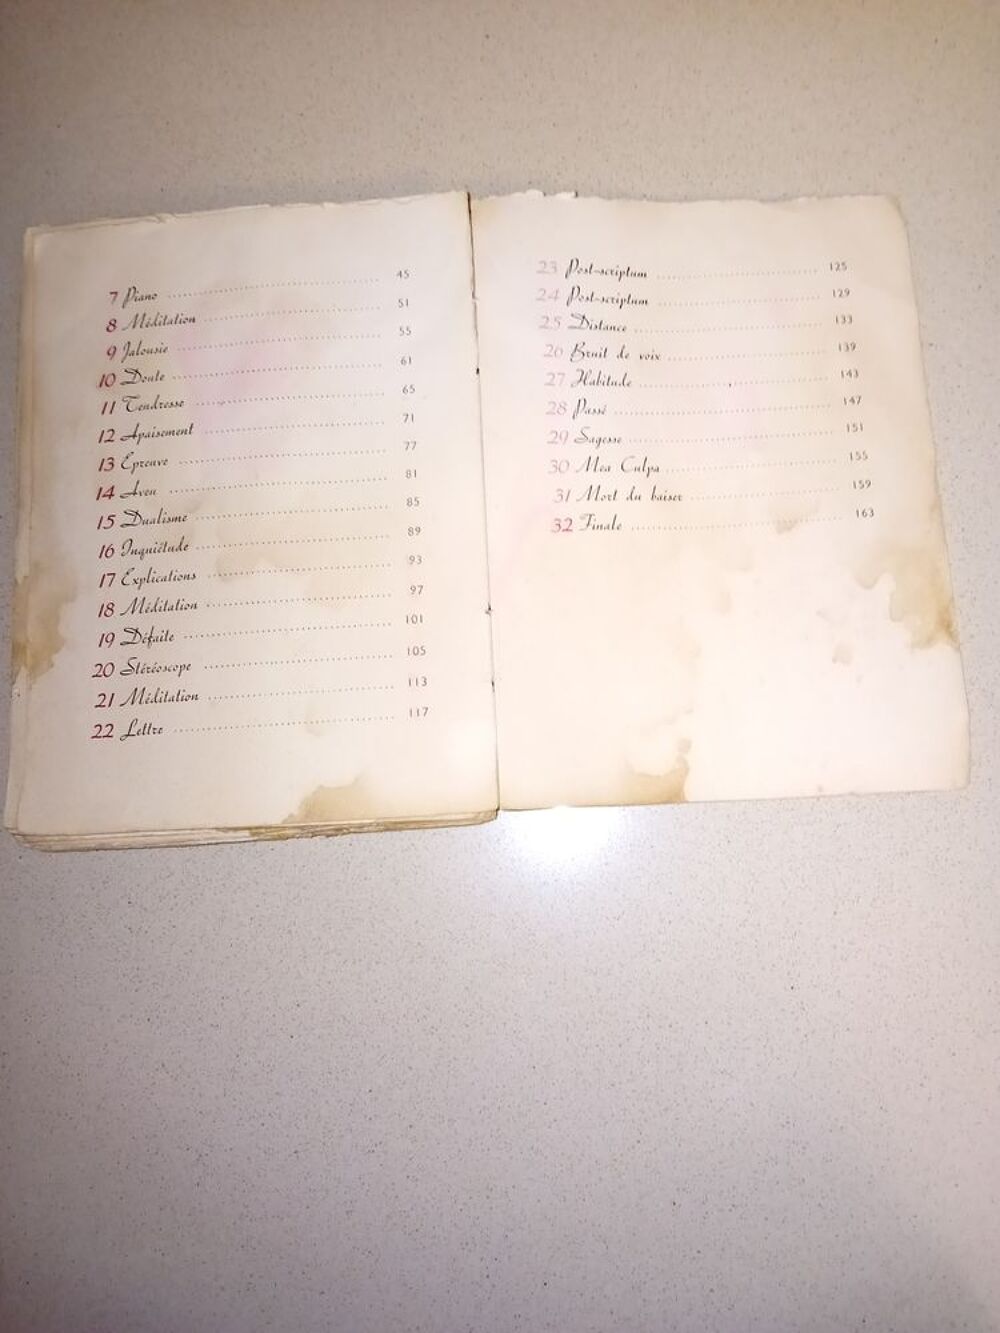 7 Piano 45
8 Méditation 51
9 Jalousie 55
10 Doute 61
11 Tendresse 65
12 Apaisement 71
13 Epreuve 77
14 Aveu 81
15 Dualisme 85
16 Inquiétude 89
17 Explications 93
18 Méditation 97
19 Défaite 101
20 Stéréoscope 105
21 Méditation 113
22 Lettre 117
23 Post-scriptum 125
24 Post-scriptum 129
25 Distance 133
26 Bruit de voix 139
27 Habitude 143
28 Passé 147
29 Sagesse 151
30 Mea Culpa 155
31 Mort du baiser 159
32 Finale 163